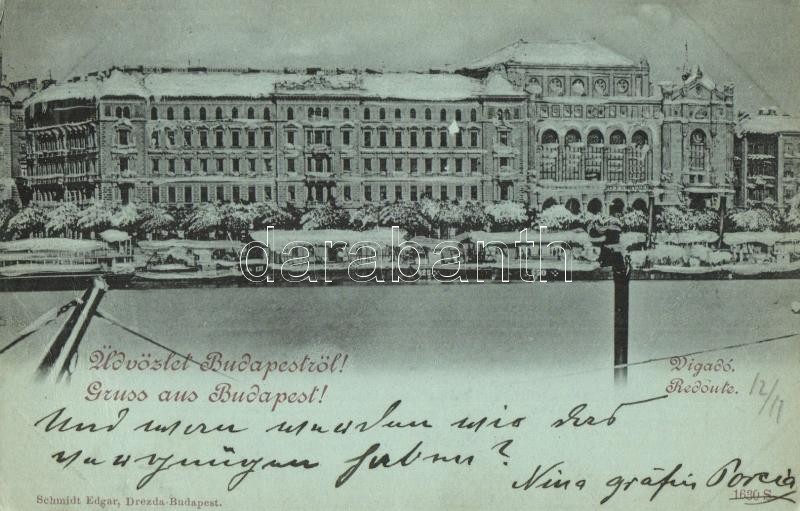 darabanth
Üdvözlet Budapestről!
Gruss aus Budapest!
Vigadó.
Redoute.
12/11
Und wann werden wir das
vergnügen haben?
Nina gräfin Porcia
Schmidt Edgar, Drezda-Budapest.
1630 S